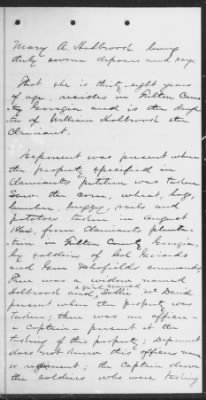 Mary A Holbrook being
duly sworn deposes and says
That she is thirty eight years
of age, resides in Fulton Coun
ty Georgia and is the daugh
ter of William Holbrook the
Claimant.
Deponent was present when
the property specified in
Claimants petition was taken
Saw the corn, wheat, hogs,
lumber, buggy, rails and
potatoes taken in August
1864, from Claimants planta-
tion in Fulton County Georgia,
by soldiers of Col
and Gen Schofields command;
There was a widow named
Holbrook and Sallie Mc David
present when the property was
taken; there was an officer -
a captain - present at the
taking of this property; Deponent
does not know this officers name
or regiment; the Captain drove
the soldiers who were taking